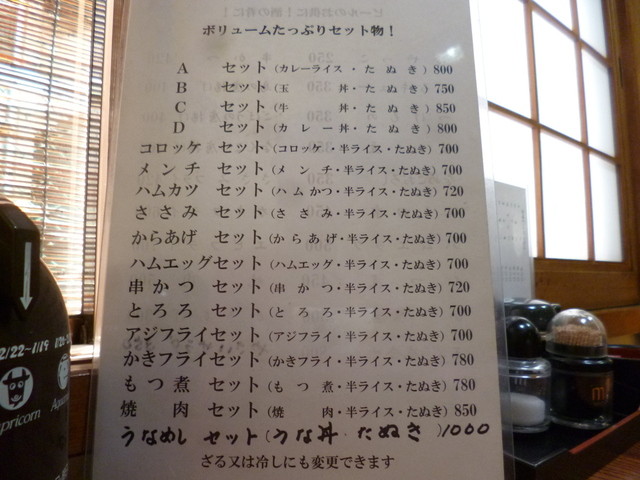 ボリュームたっぷりセット物！
A セット（カレーライス・たぬき）800
B セット（玉丼・たぬき）750
C セット（牛丼・たぬき）850
D セット（カレー丼・たぬき）800
コロッケセット（コロッケ・半ライス・たぬき）700
メンチセット（メンチ・半ライス・たぬき）700
ハムカツセット（ハムかつ・半ライス・たぬき）720
ささみセット（ささみ・半ライス・たぬき）700
からあげセット（からあげ・半ライス・たぬき）700
ハムエッグセット（ハムエッグ・半ライス・たぬき）700
串かつセット（串かつ・半ライス・たぬき）720
とろろセット（とろろ・半ライス・たぬき）700
アジフライセット（アジフライ・半ライス・たぬき）700
かきフライセット（かきフライ・半ライス・たぬき）780
もつ煮セット（もつ煮・半ライス・たぬき）780
焼肉セット（焼肉・半ライス・たぬき）850
うなめしセット（うな丼・たぬき）1000
ざる又は冷しにも変更できます
2/22-1/19 1/21-
apricorn Aqua
m